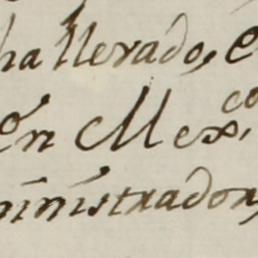 ha llevado, e
en Mex.co
ministrador,